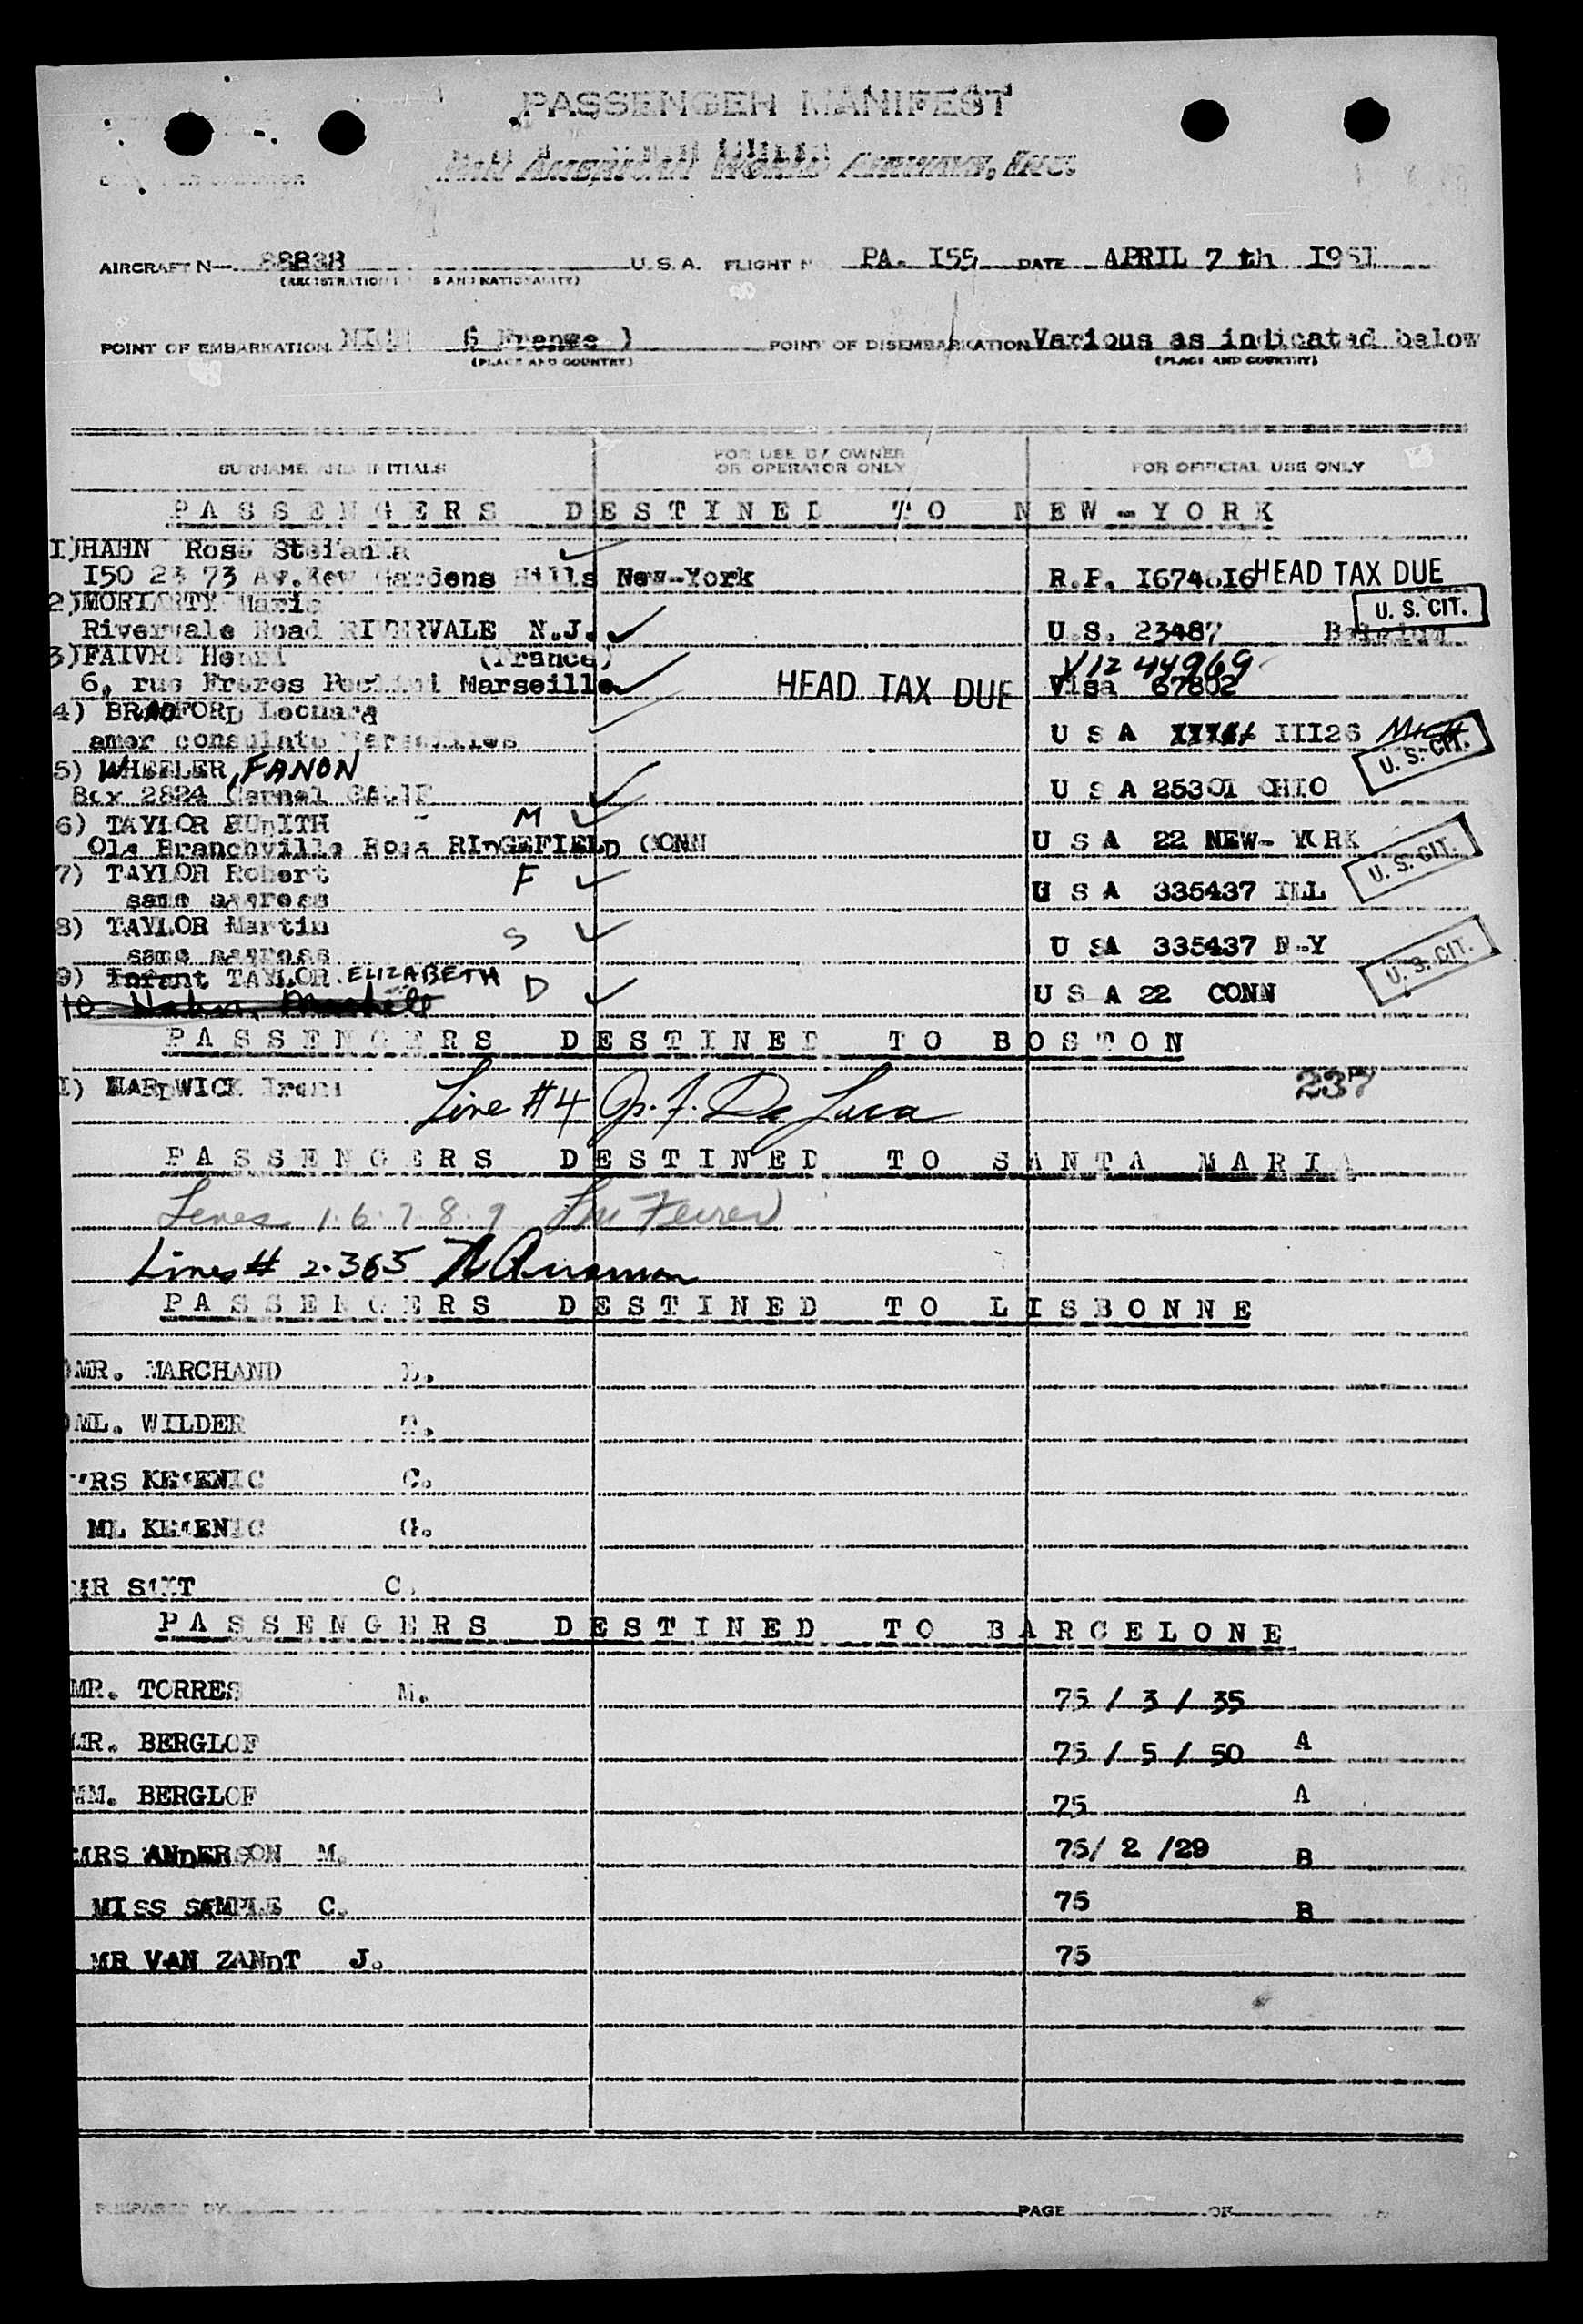 PASSENGER MANIFEST
PAN AMERICAN WORLD AIRWAYS, INC.
AIRCRAFT N— 88838 U.S.A. FLIGHT PA. I55 DATE APRIL 7 th I95I
(REGISTRATION S AND NATIONALITY)
POINT OF EMBARKATION ( France ) POINT OF DISEMBARKATION Various as indicated below
(PLACE AND COUNTRY) (PLACE AND COUNTRY)
SURNAME AND INITIALS FOR USE BY OWNER OR OPERATOR ONLY FOR OFFICIAL USE ONLY
PASSENGERS DESTINED TO NEW-YORK
I) HAHN Rose Stefania
I50 23 73 Av. Kew Gardens Hills New-York R.P. I674616 HEAD TAX DUE
2) MORIARTY Marie U.S. CIT.
Rivervale Road RIVERVALE N.J. U.S. 23487
3) FAIVRE Henri (France) V1244969
6, rue Freres Marseille HEAD TAX DUE Visa 67802
4) BRADFORD Leonard
amer consulate Marseilles U S A III26 Mich U.S. CIT.
5) WHEELER, FANON
Box 2824 Carmel CALIF U S A 25301 OHIO
6) TAYLOR M
Ols Branchville Roas RIDGEFIELD CONN U S A 22 NEW- YORK U.S. CIT.
7) TAYLOR Robert F
same address U S A 335437 ILL
8) TAYLOR Martin S
same address U SA 335437 N-Y U.S. CIT.
9) Infant TAYLOR ELIZABETH D
10 U S A 22 CONN
PASSENGERS DESTINED TO BOSTON
I) HARDWICK Irene Line #4 De Luca 237
PASSENGERS DESTINED TO SANTA MARIA
Lines 1. 6. 7. 8. 9
Lines # 2. 3 & 5
PASSENGERS DESTINED TO LISBONNE
MR. MARCHAND
ML. WILDER
MRS C.
ML G.
MR C.
PASSENGERS DESTINED TO BARCELONE
MR. TORRES M. 75 / 3 / 35
MR. BERGLOF 75 / 5 / 50 A
MM. BERGLOF 75 A
MRS ANDERSON M. 75/ 2 /29 B
MISS SAMPLE C. 75 B
MR VAN ZANDT J. 75
PREPARED BY PAGE OF